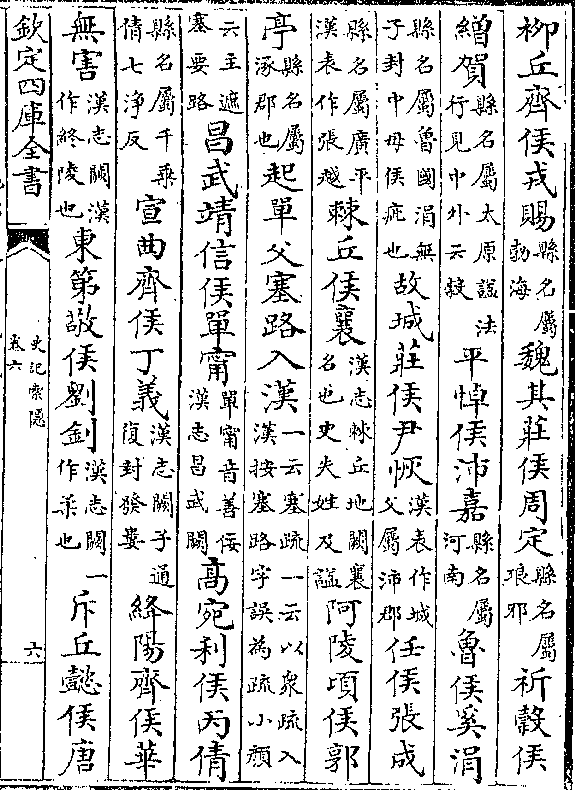 柳丘齊侯戎賜縣名屬勃海魏其莊侯周定縣名屬琅邪祈穀侯
繒賀縣名屬太原謚法行見中外云穀平悼侯沛嘉縣名屬河南魯侯奚涓
縣名屬魯國涓無子封中母侯疵也故城莊侯尹恢漢表作城父屬沛郡任侯張成
縣名屬廣平漢表作張越棘丘侯襄漢志棘丘地闕襄名也史失姓及謚阿陵頃侯郭
亭縣名屬涿郡也起單父塞路入漢一云塞疏一云以衆疏入漢按塞路字誤為疏小顔
云主遮塞要路昌武靖信侯單甯單甯音善佞漢志昌武闕髙宛利侯丙倩
縣名屬千乗倩七淨反宣曲齊侯丁義漢志闕子通復封發婁絳陽齊侯華
無害漢志闕漢作終陵也東第敬侯劉釗漢志闕一作柔也斥丘懿侯唐
欽定四庫全書
史記索隠
卷六
六